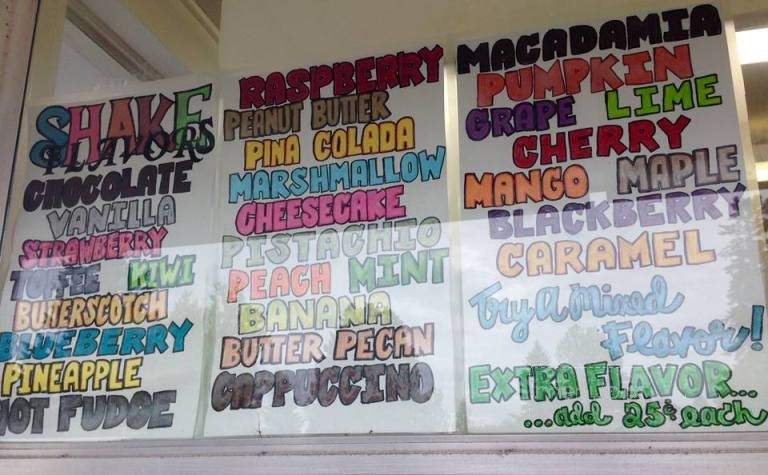 SHAKE
FLAVORS
CHOCOLATE
VANILLA
STRAWBERRY
TOFFEE KIWI
BUTTERSCOTCH
BLUEBERRY
PINEAPPLE
HOT FUDGE
RASPBERRY
PEANUT BUTTER
PINA COLADA
MARSHMALLOW
CHEESECAKE
PISTACHIO
PEACH MINT
BANANA
BUTTER PECAN
CAPPUCCINO
MACADAMIA
PUMPKIN
GRAPE LIME
CHERRY
MANGO MAPLE
BLACKBERRY
CARAMEL
Try A Mixed
Flavor!
EXTRA FLAVOR...
...add 25¢ each